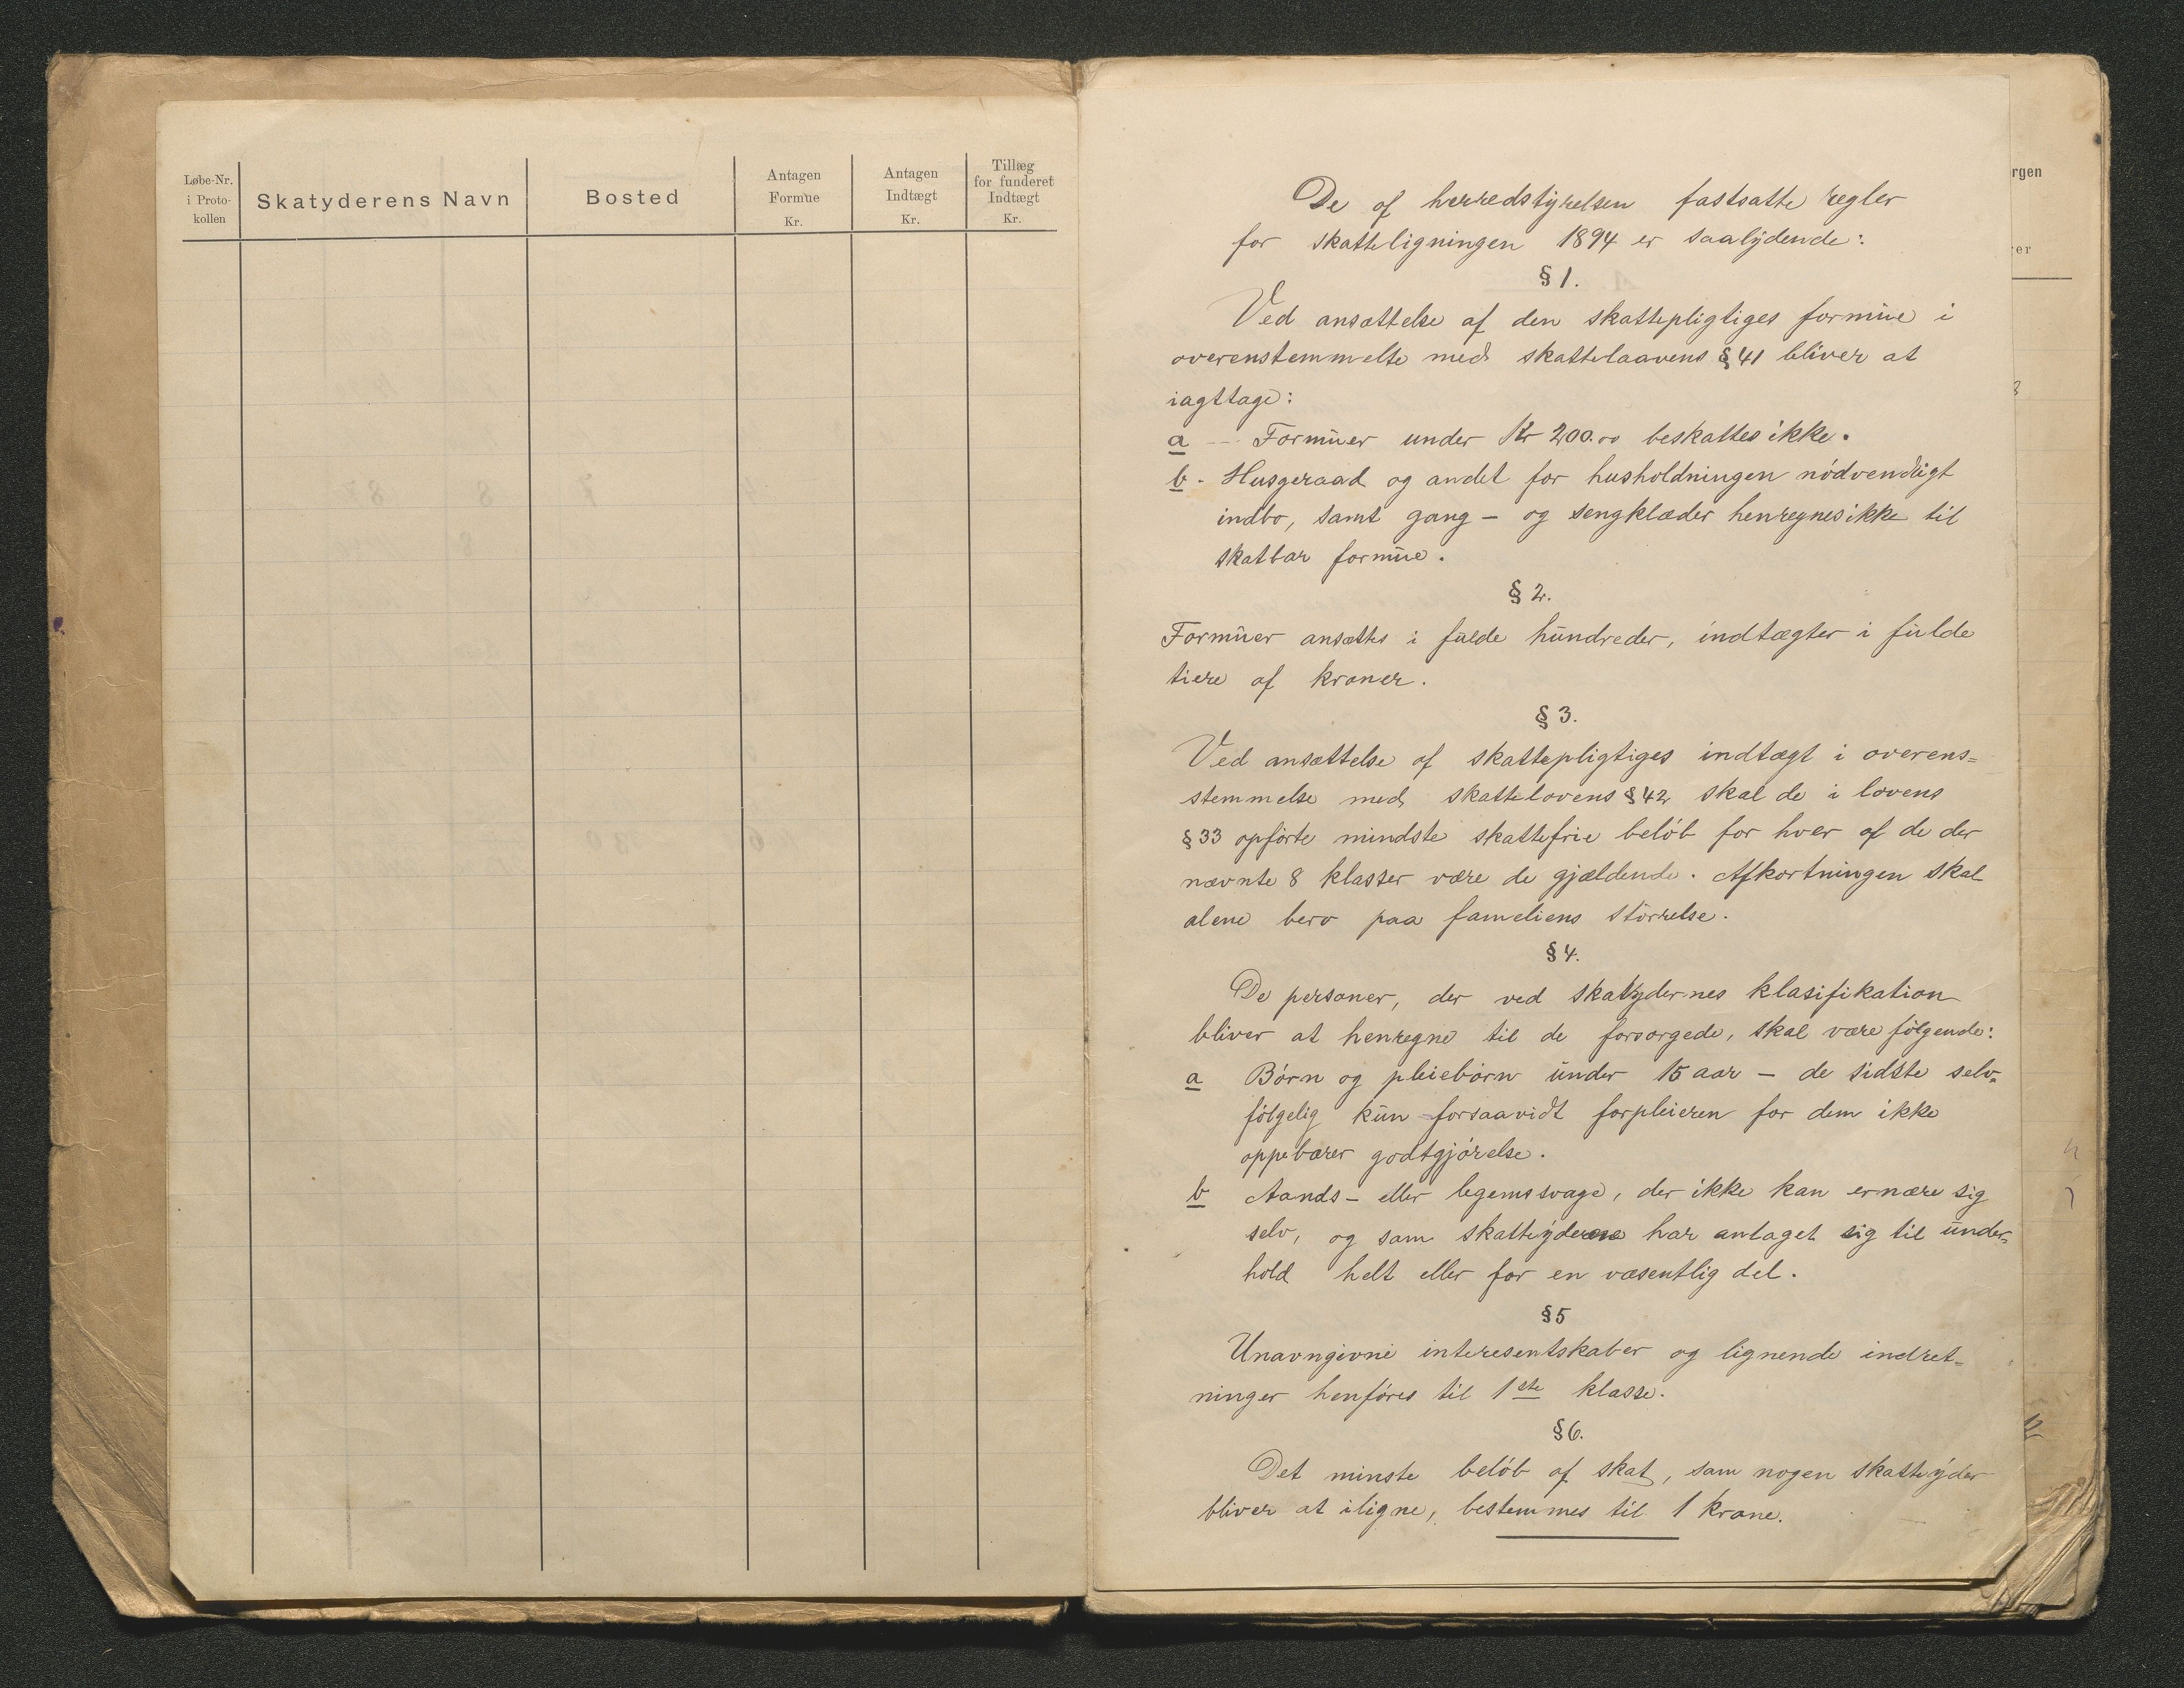 Løbe-Nr.
i Proto-
kollen
Skatyderens Navn
Bosted
Antagen
Formue
Kr.
Antagen
Indtægt
Kr.
Tillæg
for funderet
Indtægt
Kr.
De af herredstyrelsen fastsatte regler
for skatteligningen 1894 er saalydende:
§ 1.
Ved ansættelse af den skattepligtiges formue i
overenstemmelse med skattelaavens § 41 bliver at
iagttage:
a - Formuer under Kr 200.00 beskattes ikke.
b. Husgeraad og andet for husholdningen nödvendigt
indbo, samt gang- og sengklæder henregnes ikke til
skatbar formue.
§ 2.
Formuer ansættes i fulde hundreder, indtægter i fulde
tiere af kroner.
§ 3.
Ved ansættelse af skattepligtiges indtægt i overens=
stemmelse med skattelovens § 42 skal de i lovens
§ 33 opförte mindste skattefrie belöb for hver af de der
nævnte 8 klasser være de gjældende. Afkortningen skal
alene bero paa fameliens störrelse.
§ 4.
De personer, der ved skatydernes klasifikation
bliver at henregne til de forsorgede, skal være fölgende:
a Börn og pleiebörn under 15 aar - de sidste selv=
fölgelig kun forsaavidt forpleieren for dem ikke
oppebærer godtgjörelse.
b Aands- eller legemssvage, der ikke kan ernære sig
selv, og som skatteyderne har antaget sig til under=
hold helt eller for en væsentlig del.
§ 5
Unavngivne interesentskaber og lignende indret=
ninger henföres til 1ste klasse.
§ 6.
Det minste belöb af skat, som nogen skatteyder
bliver at iligne, bestemmes til 1 krone.
rgen
er